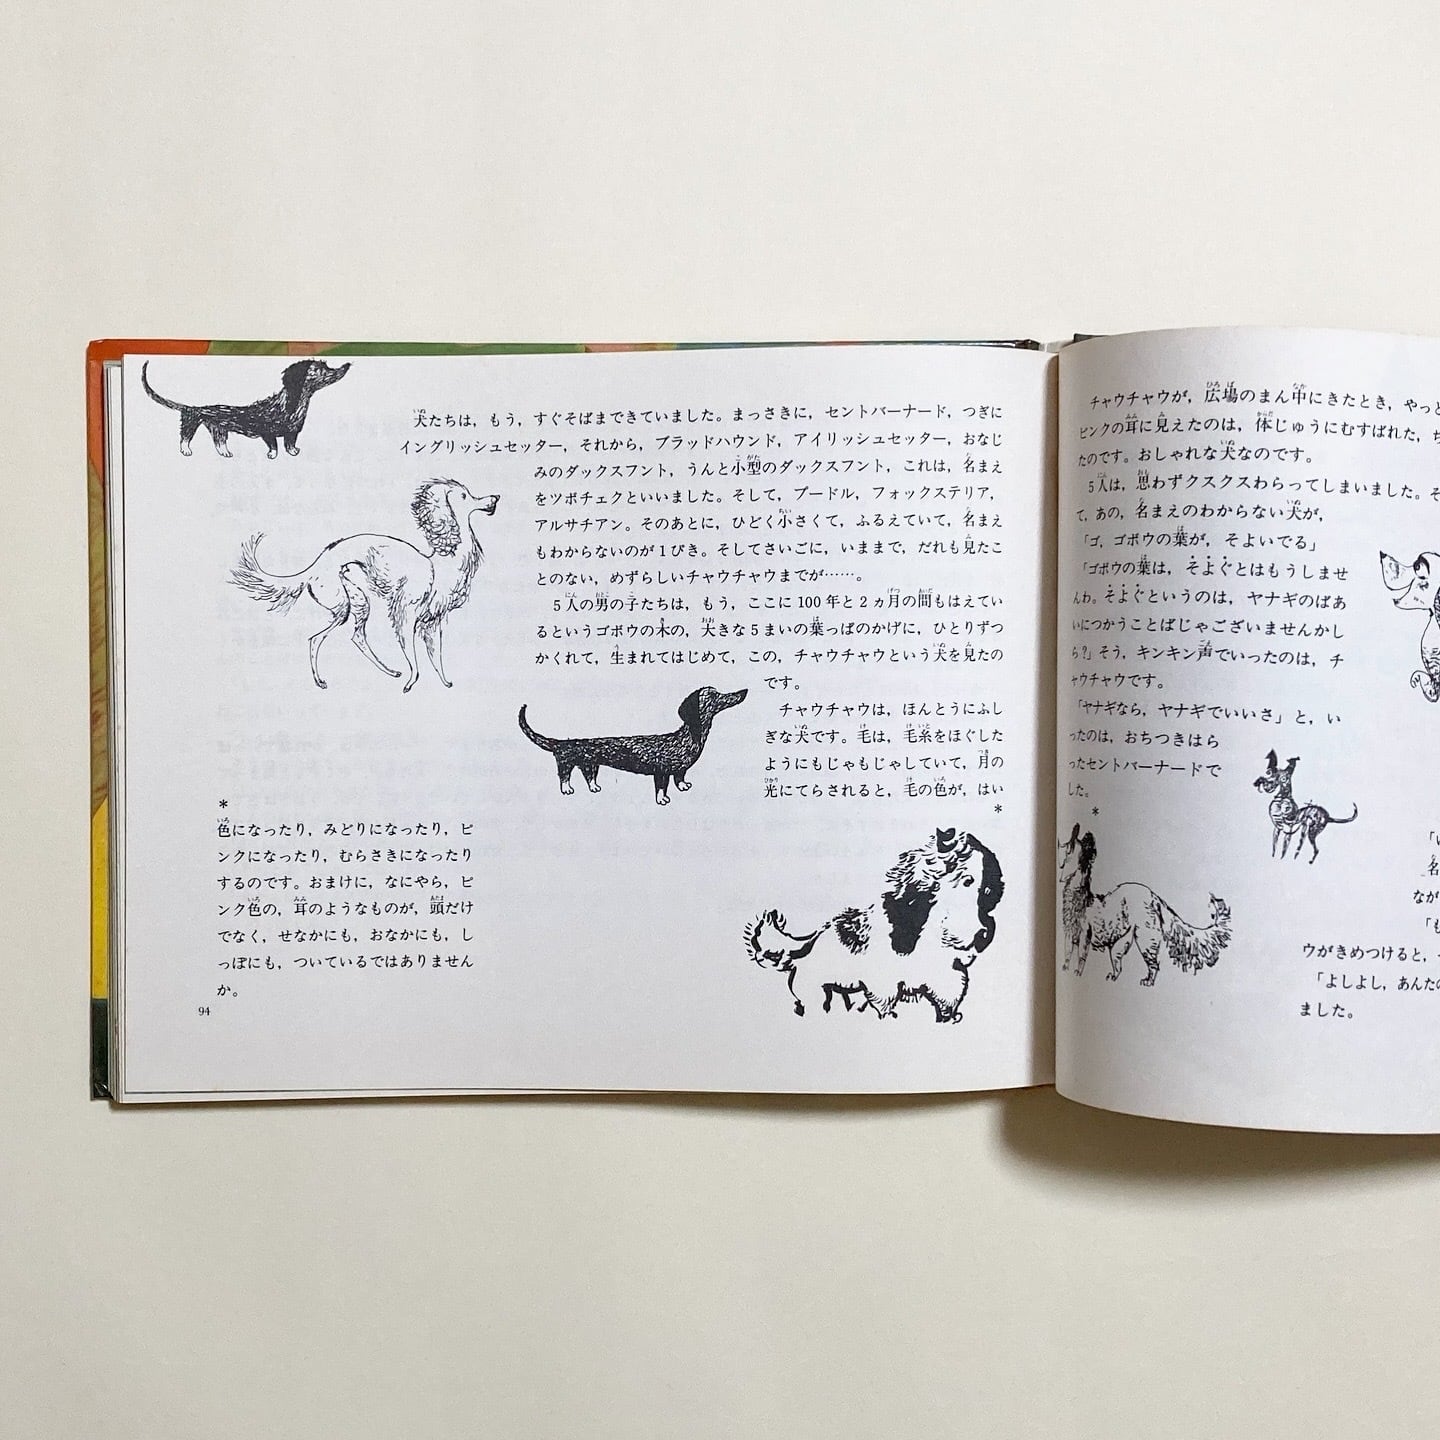 犬たちは，もう，すぐそばまできていました。まっさきに，セントバーナード，つぎに
イングリッシュセッター，それから，ブラッドハウンド，アイリッシュセッター，おなじ
みのダックスフント，うんと小型のダックスフント，これは，名まえ
をツボチェクといいました。そして，プードル，フォックステリア，
アルサチアン。そのあとに，ひどく小さくて，ふるえていて，名まえ
もわからないのが1ぴき。そしてさいごに，いままで，だれも見たこ
とのない，めずらしいチャウチャウまでが……。
5人の男の子たちは，もう，ここに100年と2ヵ月の間もはえてい
るというゴボウの木の，大きな5まいの葉っぱのかげに，ひとりずつ
かくれて，生まれてはじめて，この，チャウチャウという犬を見たの
です。
チャウチャウは，ほんとうにふし
ぎな犬です。毛は，毛糸をほぐした
ようにもじゃもじゃしていて，月の
光にてらされると，毛の色が，はい
*
*
色になったり，みどりになったり，ピ
ンクになったり，むらさきになったり
するのです。おまけに，なにやら，ピ
ンク色の，耳のようなものが，頭だけ
でなく，せなかにも，おなかにも，し
っぽにも，ついているではありません
か。
94
チャウチャウが，広場のまん中にきたとき，やっと
ピンクの耳に見えたのは，体じゅうにむすばれた，
たのです。おしゃれな犬なのです。
5人は，思わずクスクスわらってしまいました。そ
て，あの，名まえのわからない犬が，
「ゴ，ゴボウの葉が，そよいでる」
「ゴボウの葉は，そよぐとはもうしませ
んわ。そよぐというのは，ヤナギのばあ
いにつかうことばじゃございませんかし
ら？」そう，キンキン声でいったのは，チ
ャウチャウです。
「ヤナギなら，ヤナギでいいさ」と，い
ったのは，おちつきはら
ったセントバーナードで
した。
*
「い
名
なが
「も
ウがきめつけると，
「よしよし，あんたの
ました。